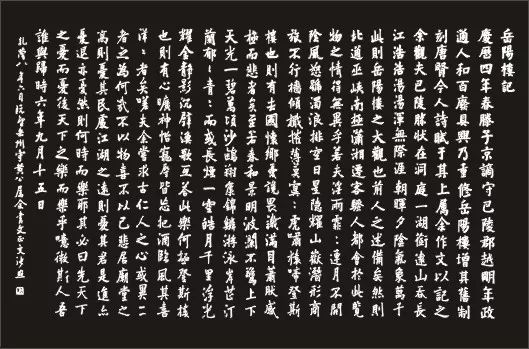 岳陽樓記
慶曆四年春滕子京謫守巴陵郡越明年政
通人和百廢具興乃重修岳陽樓增其舊制
刻唐賢今人詩賦于其上屬余作文以記之
余觀夫巴陵勝狀在洞庭一湖銜遠山吞長
江浩浩湯湯渾無際涯朝暉夕陰氣象萬千
此則岳陽樓之大觀也前人之述備矣然則
北通巫峽南極瀟湘遷客騷人都會於此覽
物之情得無異乎若夫淫雨霏〻連月不開
陰風怒號濁浪排空日星隱耀山嶽潛形商
旅不行檣傾楫摧薄暮冥〻虎嘯猿啼登斯
樓也則有去國懷鄉憂讒畏譏滿目蕭然感
極而悲者矣至若春和景明波瀾不驚上下
天光一碧萬頃沙鷗翔集錦鱗游泳岸芷汀
蘭郁〻青〻而或長煙一空皓月千里浮光
耀金靜影沉璧漁歌互答此樂何極登斯樓
也則有心曠神怡寵辱皆忘把酒臨風其喜
洋〻者矣嗟夫余嘗求古仁人之心或異二
者之為何哉不以物喜不以己悲居廟堂之
高則憂其民處江湖之遠則憂其君是進亦
憂退亦憂然則何時而樂耶其必曰先天下
之憂而憂後天下之樂而樂乎噫微斯人吾
誰與歸時六年九月十五日
八年六月